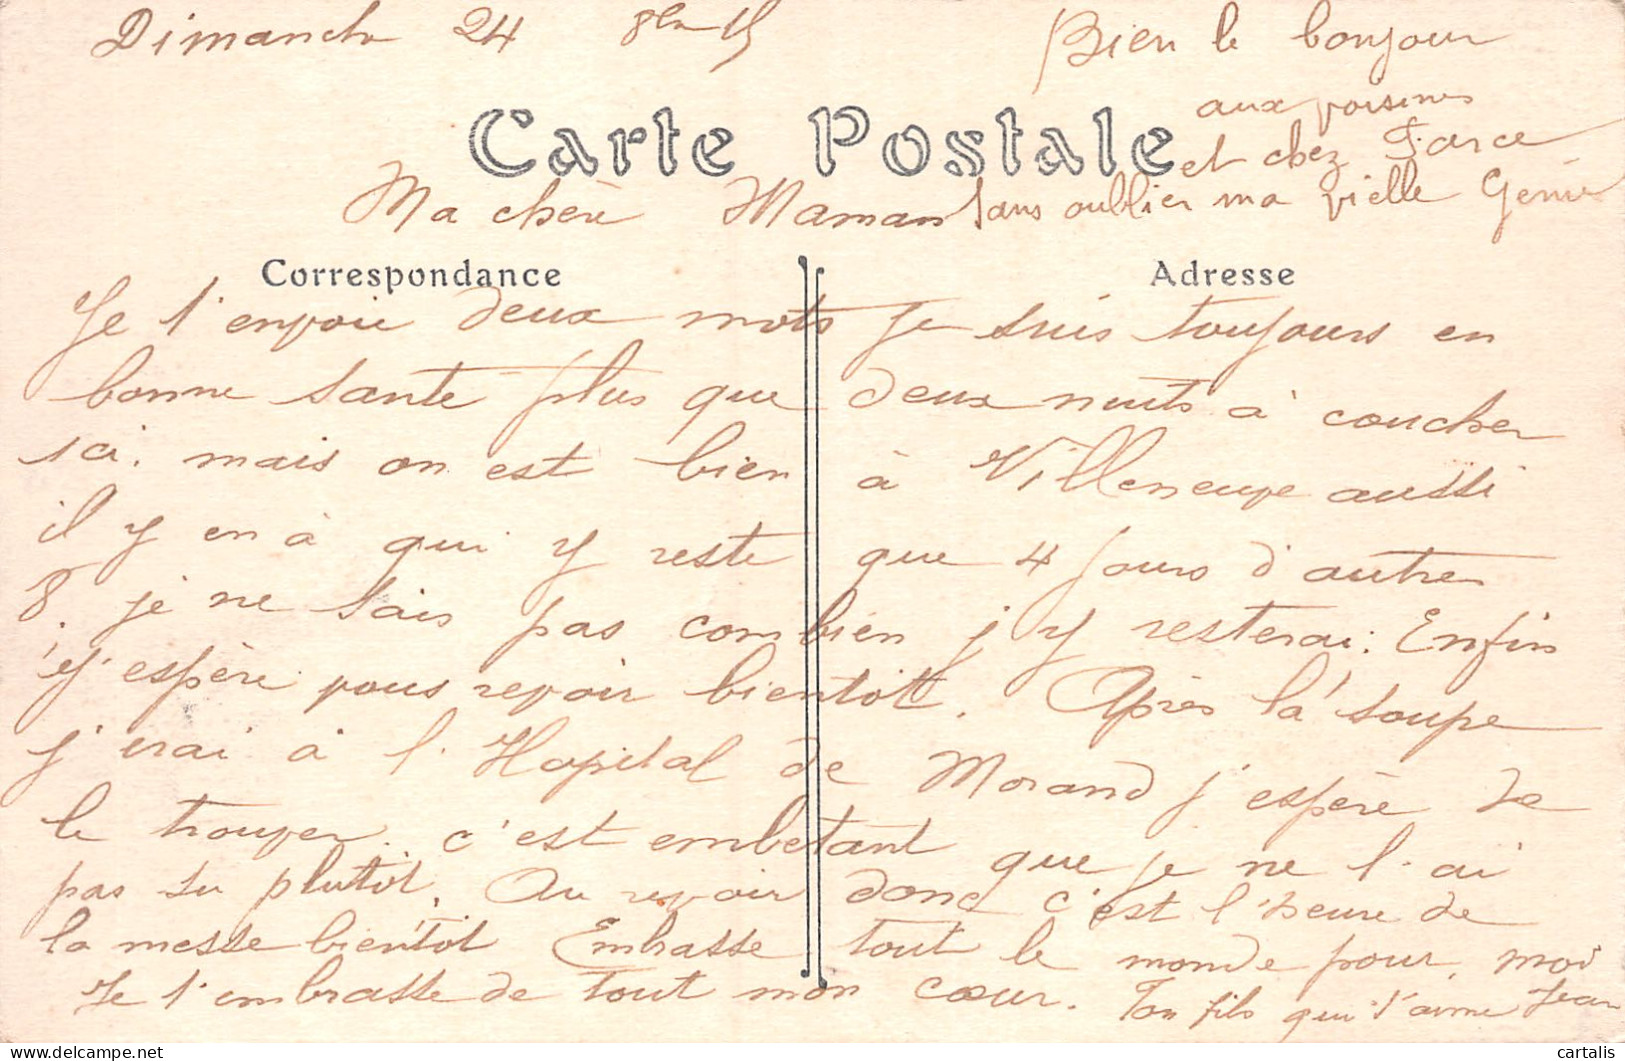 Dimanche 24 8bre 15
Bien le bonjour
aux voisines
et chez Farce
sans oublier ma vielle
Carte Postale
Ma chère Maman
Correspondance
Adresse
Je t'envoie deux mots je suis toujours en
bonne sante plus que deux nuits à coucher
ici. mais on est bien à Villeneuve aussi
il y en à qui y reste que 4 jours d'autres
8. je ne sais pas combien j'y resterai. Enfin
j'espère vous revoir bientôt. Après la soupe
j'irai à l'Hopital de Morand j'espère de
le trouver c'est embetant que je ne l'ai
pas su plutôt. Au revoir donc c'est l'heure de
la messe bientôt Embrasse tout le monde pour moi
Je t'embrasse de tout mon cœur. Ton fils qui t'aime Jean
cartalis